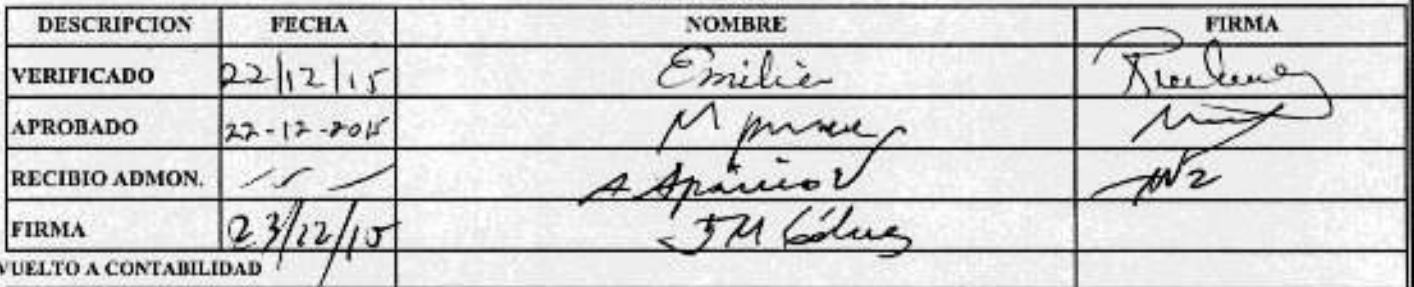 DESCRIPCION FECHA NOMBRE FIRMA
VERIFICADO 22/12/15 Emilie
APROBADO 22-12-2015 M
RECIBIO ADMON. A Aparicio V
FIRMA 23/12/15 JM Gálvez
VUELTO A CONTABILIDAD